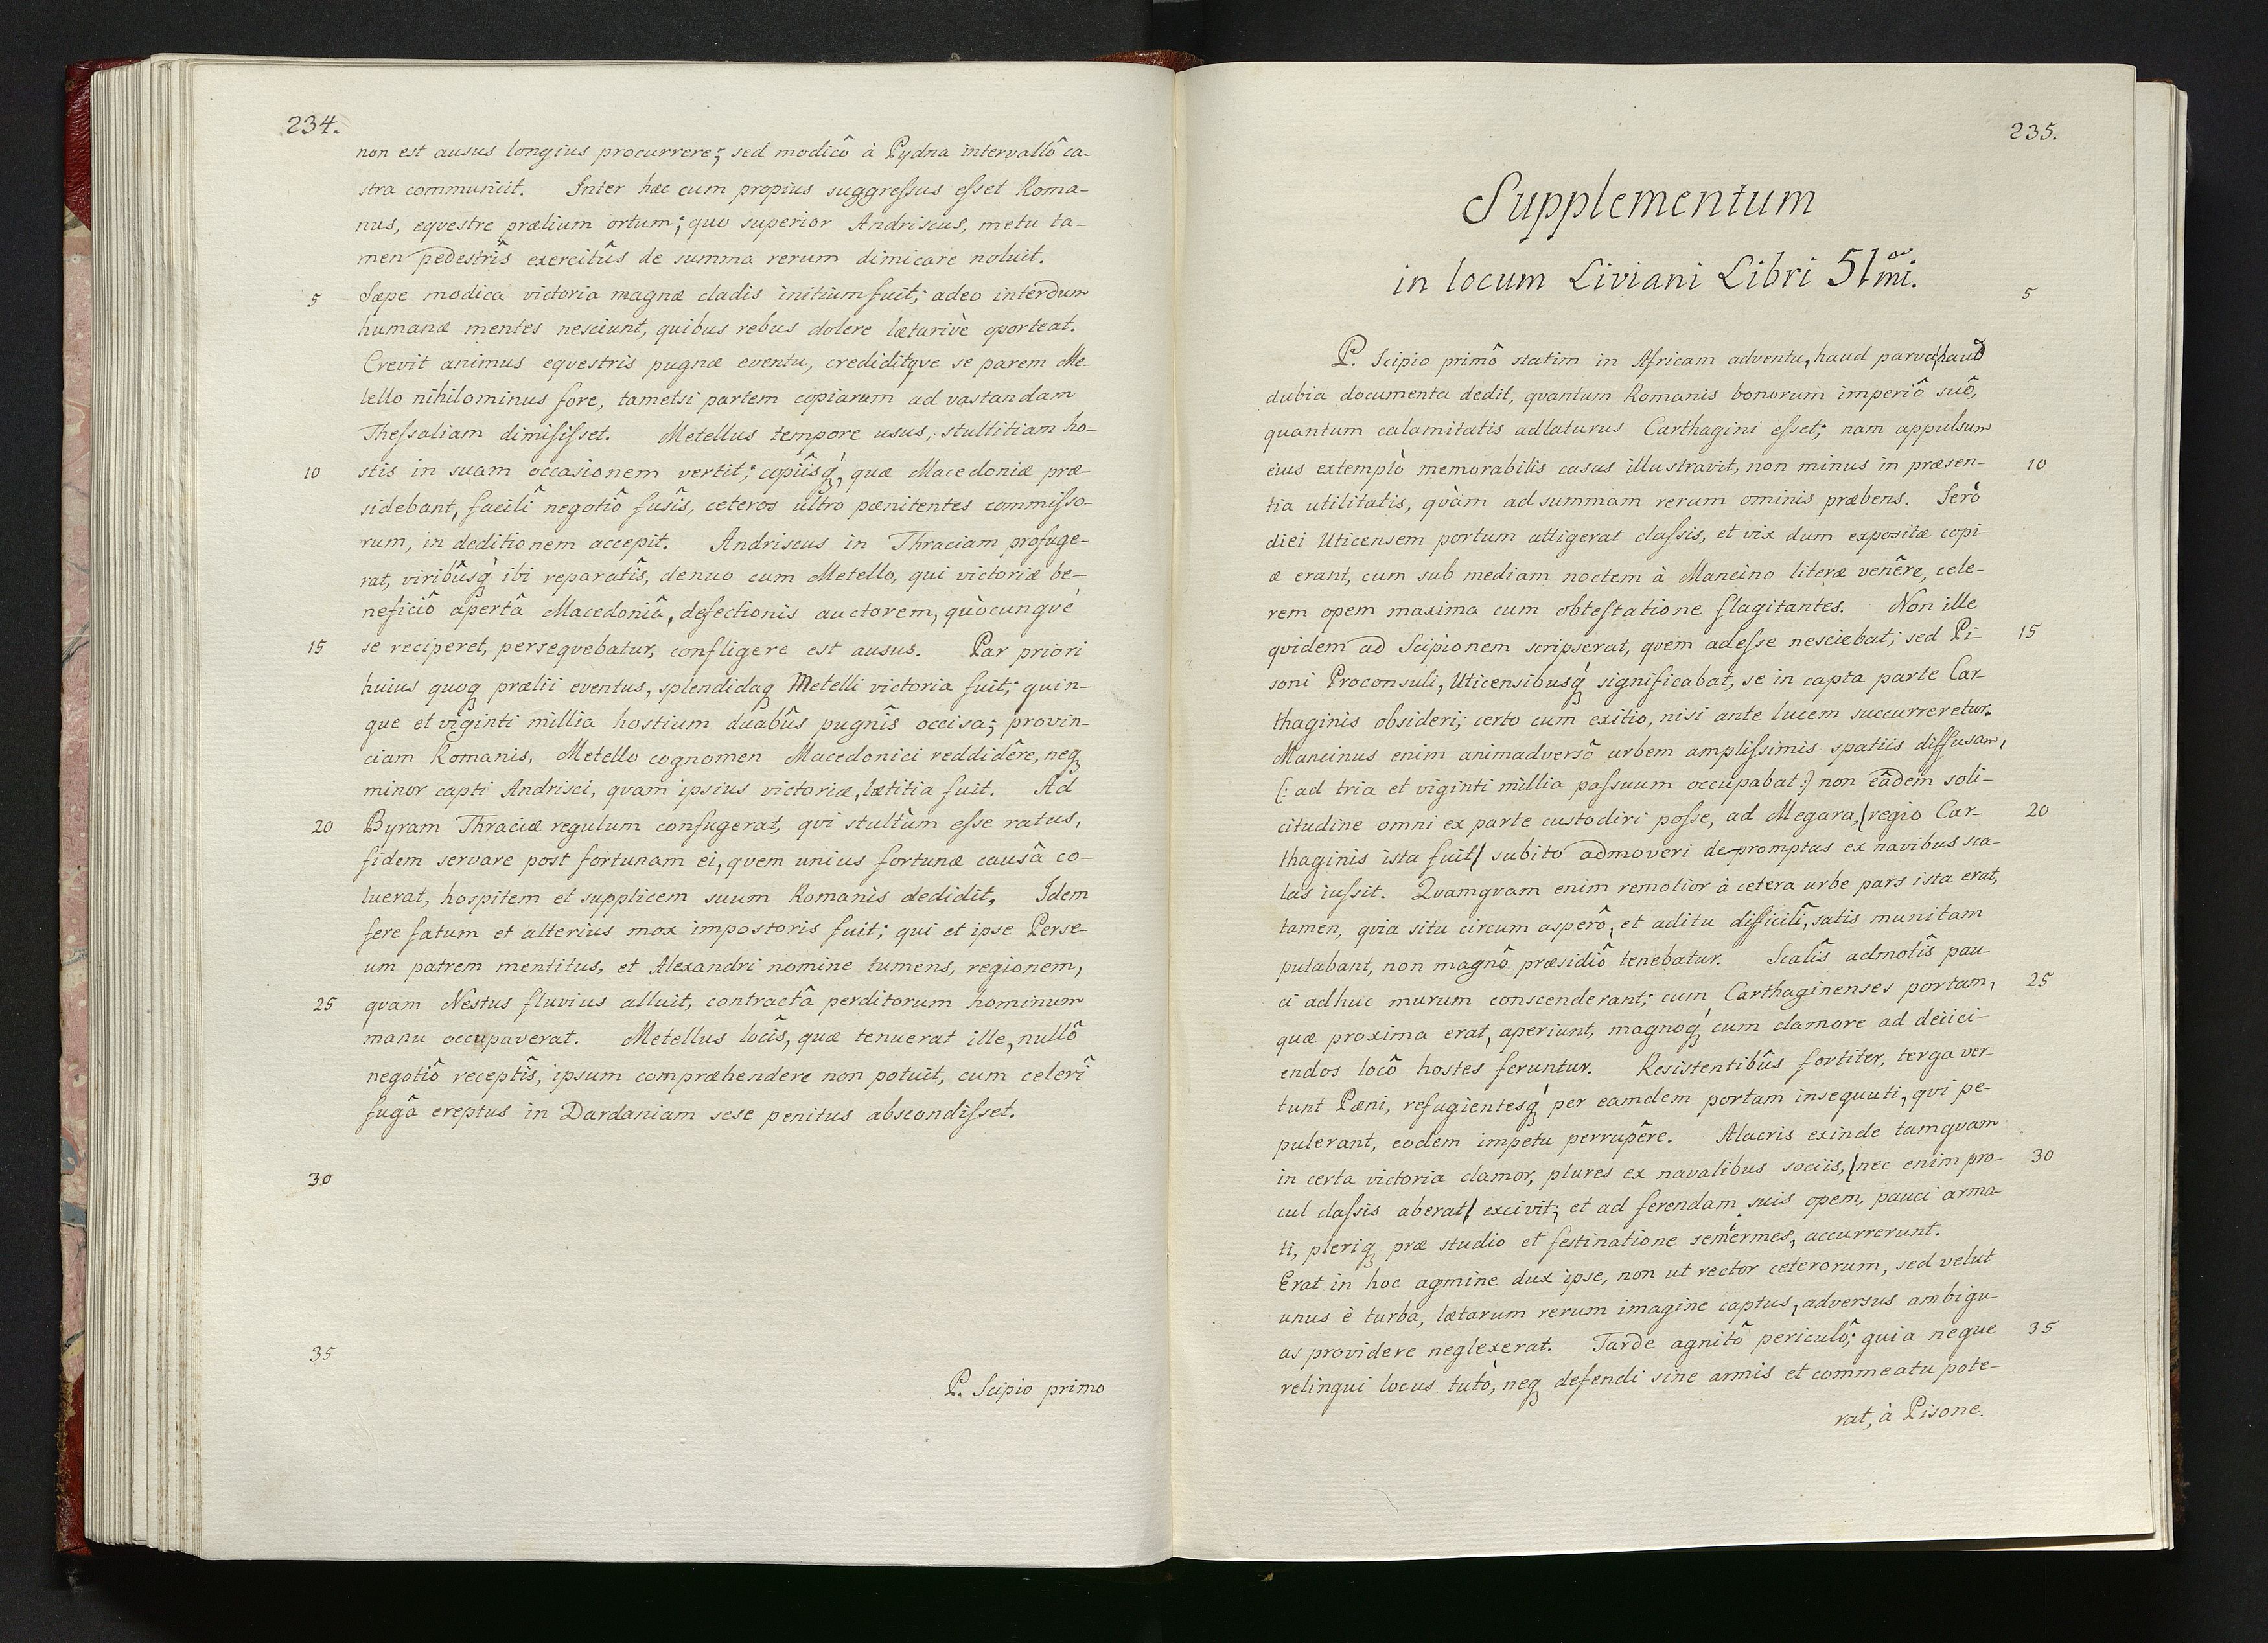 234.
non est ausus longius procurrere; sed modicô à Pydna intervallô ca-
stra communiit. Inter hæc cum propius suggressus esset Roma-
nus, eqvestre prælium ortum; quo superior Andriscus, metu ta-
men pedestris exercitûs de summa rerum dimicare noluit.
5 Sæpe modica victoria magnæ cladis initium fuit; adeo interdum
humanæ mentes nesciunt, quibus rebus dolere lætarivè oporteat.
Crevit animus eqvestris pugnæ eventu, crediditqve se parem Me-
tello nihilominus fore, tametsi partem copiarum ad vastandam
Thessaliam dimisisset. Metellus tempore usus, stultitiam ho-
10 stis in suam occasionem vertit; copiîsq́, quæ Macedoniæ præ-
sidebant, facilî negotiô fusîs, ceteros ultro pænitentes commisso-
rum, in deditionem accepit. Andriscus in Thraciam profuge-
rat, viribûsq́ ibi reparatîs, denuo cum Metello, qui victoriæ be-
neficiô apertâ Macedoniâ, defectionis auctorem, qùocunqvé
15 se reciperet, perseqvebatur, confligere est ausus. Par priori
huius quoq prælii eventus, splendidaq Metelli victoria fuit; quin-
que et viginti millia hostium duabûs pugnîs occisa; provin-
ciam Romanis, Metello cognomen Macedonici reddidêre, neq
minor capti Andrisci, qvam ipsius victoriæ, lætitia fuit. Ad
20 Byram Thraciæ regulum confugerat, qvi stultùm esse ratus,
fidem servare post fortunam ei, qvem unius fortunæ causâ co-
luerat, hospitem et supplicem suum Romanis dedidit. Idem
fere fatum et alterius mox impostoris fuit; qui et ipse Perse-
um patrem mentitus, et Alexandri nomine tumens, regionem,
25 qvam Nestus fluvius alluit, contractâ perditorum hominum
manu occupaverat. Metellus locîs, quæ tenuerat ille, nullô
negotiô receptîs, ipsum compræhendere non potuit, cum celerî
fugâ ereptus in Dardaniam sese penitus abscondisset.
30
35
P. Scipio primo
235.
Supplementum
in locum Liviani Libri 51mi.
5
P. Scipio primô statim in Africam adventu, haud parva, haud
dubia documenta dedit, qvantum Romanis bonorum imperiô suô,
quantum calamitatis adlaturus Carthagini esset; nam appulsum
eius extemplò memorabilis casus illustravit, non minus in præsen- 10
tia utilitatis, qvàm ad summam rerum ominis præbens. Serò
diei Uticensem portum attigerat classis, et vix dum expositæ copi-
æ erant, cum sub mediam noctem à Mancino literæ venêre, cele-
rem opem maxima cum obtestatione flagitantes. Non ille
qvidem ad Scipionem scripserat, qvem adesse nesciebat; sed Pi- 15
soni Proconsuli, Uticensibusq́ significabat, se in capta parte Car-
thaginis obsideri; certo cum exitio, nisi ante lucem succurreretur.
Mancinus enim animadversô urbem amplissimis spatiis diffusam,
(: ad tria et viginti millia passuum occupabat :) non eâdem soli-
citudine omni ex parte custodiri posse, ad Megara, /regio Car- 20
thaginis ista fuit/ subito admoveri depromptas ex navibus sca-
las iussit. Qvamqvam enim remotior à cetera urbe pars ista erat,
tamen, qvia situ circum asperô, et aditu difficilî, satis munitam
putabant, non magnô præsidiô tenebatur. Scalîs admotîs pau-
ci adhuc murum conscenderant; cum Carthaginenses portam, 25
quæ proxima erat, aperiunt, magnoq́ cum clamore ad deiici-
endos locô hostes feruntur. Resistentibûs fortiter, terga ver-
tunt Pæni, refugientesq́ per eamdem portam insequuti, qvi pe-
pulerant, eodem impetu perrupêre. Alacris exinde tamqvam
in certa victoria clamor, plures ex navalibus sociis, /nec enim pro- 30
cul classis aberat/ excivit; et ad ferendam suis opem, pauci arma-
ti, pleriq præ studio et festinatione semermes, accurrerunt.
Erat in hoc agmine dux ipse, non ut rector ceterorum, sed velut
unus è turba, lætarum rerum imagine captus, adversus ambigu
as providere neglexerat. Tarde agnitô periculô; quia neque 35
relinqui locus tutò, neq defendi sine armis et commeatu pote-
rat, à Pisone.